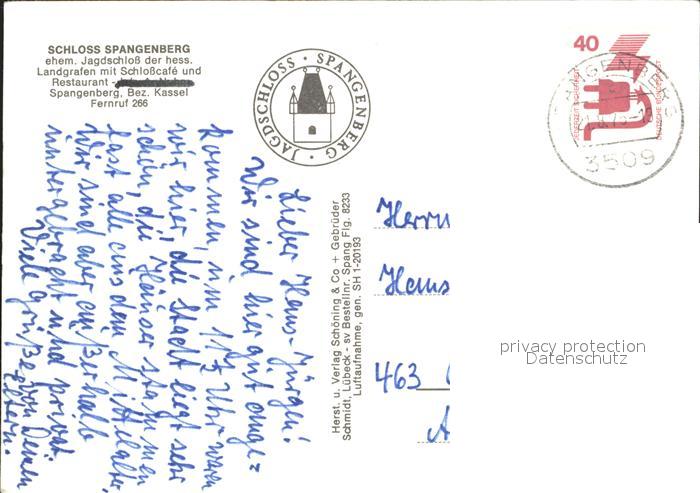 SCHLOSS SPANGENBERG
ehem. Jagdschloß der hess.
Landgrafen mit Schloßcafé und
Restaurant -
Spangenberg, Bez. Kassel
Fernruf 266
JAGDSCHLOSS · SPANGENBERG ·
40
JEDERZEIT SICHERHEIT
DEUTSCHE BUNDESPOST
SPANGENBERG
3509
Lieber Hans-Jürgen!
Wir sind hier gut ange=
kommen, um 11½ Uhr waren
wir hier, die Stadt liegt sehr
schön, die Häuser stammen
fast alle aus dem Mittelalter,
Wir sind aber außerhalb
untergebracht und privat.
Viele Grüße von Deinen
Eltern.
Herst. u. Verlag Schöning & Co + Gebrüder
Schmidt, Lübeck - sv Bestellnr. Spang Flg. 8233
Luftaufnahme, gen. SH 1-20193
Herrn
Hans
463
A
privacy protection
Datenschutz